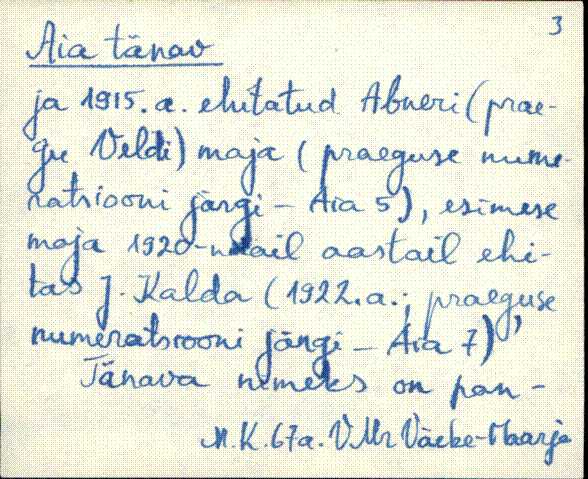 3
Aia tänav
ja 1915. a. ehitatud Abneri (prae-
gu Veldi) maja (praeguse nume-
ratsiooni järgi – Aia 5), esimese
maja 1920-ndail aastail ehi-
tas J. Kalda (1922. a.; praeguse
numeratsiooni järgi – Aia 7)
Tänava nimeks on pan-
M.K. 67a. V.Mr Väike-Maarja